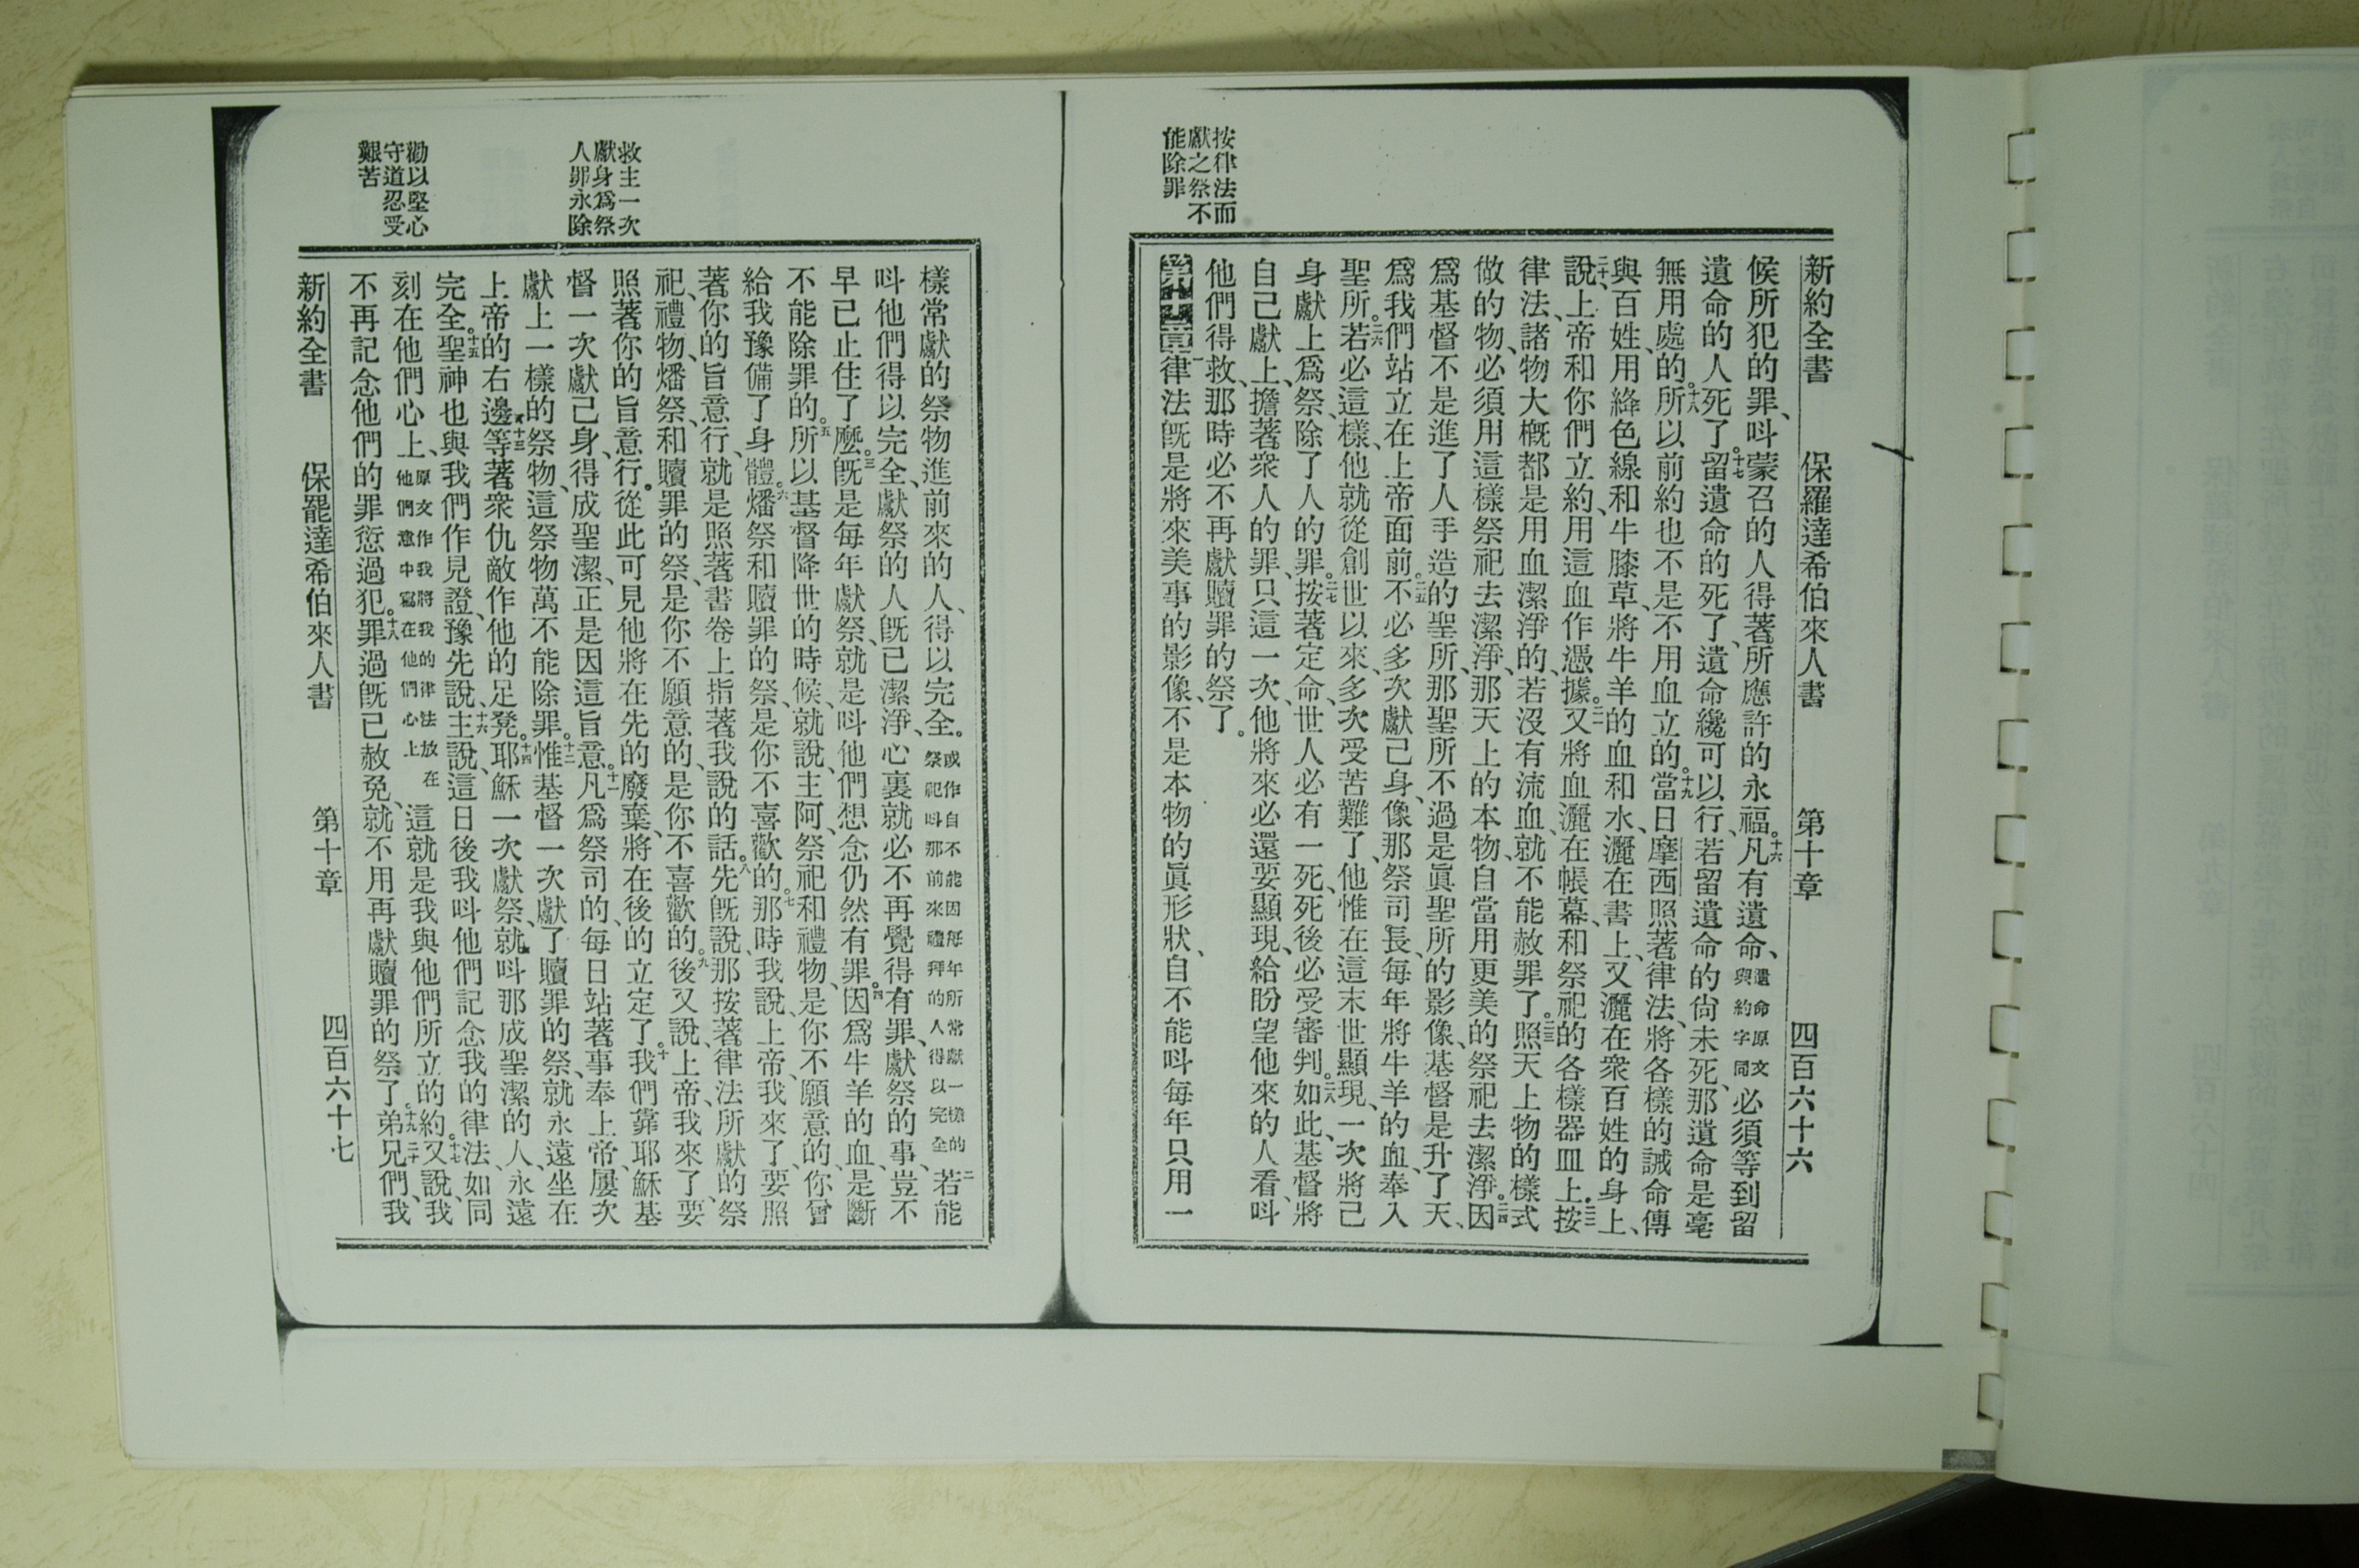 新約全書　保羅達希伯來人書　第十章　四百六十六
候所犯的罪、呌蒙召的人得著所應許的永福。十六凡有遺命、遺命原文與約字同必須等到留
遺命的人死了。十七留遺命的死了、遺命纔可以行、若留遺命的尙未死、那遺命是毫
無用處的。十八所以前約也不是不用血立的。十九當日摩西照著律法、將各樣的誡命傳
與百姓、用絳色線和牛膝草、將牛羊的血和水、灑在書上、又灑在衆百姓的身上、
二十說、上帝和你們立約、用這血作憑據。二一又將血灑在帳幕、和祭祀的各樣器皿上。二二按
律法、諸物大槪都是用血潔淨的、若沒有流血、就不能赦罪了。二三照天上物的樣式
做的物、必須用這樣祭祀去潔淨、那天上的本物、自當用更美的祭祀去潔淨。二四因
爲基督不是進了人手造的聖所、那聖所不過是眞聖所的影像、基督是升了天、
爲我們站立在上帝面前。二五不必多次獻己身、像那祭司長、每年將牛羊的血、奉入
聖所。二六若必這樣、他就從創世以來、多次受苦難了、他惟在這末世顯現、一次將己
身獻上爲祭、除了人的罪。二七按著定命、世人必有一死、死後必受審判。二八如此、基督將
自己獻上、擔著衆人的罪、只這一次、他將來必還要顯現、給盼望他來的人看、呌
他們得救、那時必不再獻贖罪的祭了。
按律法而
獻之祭不
能除罪
第十章一律法旣是將來美事的影像、不是本物的眞形狀、自不能呌每年只用一
樣常獻的祭物進前來的人、得以完全。或作自不能因每年所常獻一樣的祭祀呌那前來禮拜的人得以完全二若能
呌他們得以完全、獻祭的人旣已潔淨、心裏就必不再覺得有罪、獻祭的事、豈不
早已止住了麽。三旣是每年獻祭、就是呌他們想念仍然有罪。四因爲牛羊的血、是斷
不能除罪的。五所以基督降世的時候、就說、主阿、祭祀和禮物、是你不願意的、你曾
給我豫備了身體。六燔祭和贖罪的祭、是你不喜歡的。七那時我說、上帝、我來了、要照
著你的旨意行、就是照著書卷上指著我說的話。八先旣說、那按著律法所獻的祭
祀、禮物、燔祭、和贖罪的祭、是你不願意的、是你不喜歡的。九後又說、上帝、我來了、要
照著你的旨意行。從此可見他將在先的廢棄、將在後的立定了。十我們靠耶穌基
督一次獻己身、得成聖潔、正是因這旨意。十一凡爲祭司的、每日站著事奉上帝、屢次
獻上一樣的祭物、這祭物萬不能除罪。十二惟基督一次獻了贖罪的祭、就永遠坐在
上帝的右邊、十三等著衆仇敵作他的足凳。十四耶穌一次獻祭、就呌那成聖潔的人、永遠
完全。十五聖神也與我們作見證、豫先說、十六主說、這日後我呌他們記念我的律法、如同
刻在他們心上、原文作我將我的律法放在他們意中寫在他們心上這就是我與他們所立的約。十七又說、我
不再記念他們的罪愆過犯。十八罪過旣已赦免、就不用再獻贖罪的祭了。十九二十弟兄們、我
救主一次
獻身爲祭
人罪永除
勸以堅心
守道忍受
艱苦
新約全書　保羅達希伯來人書　第十章　四百六十七